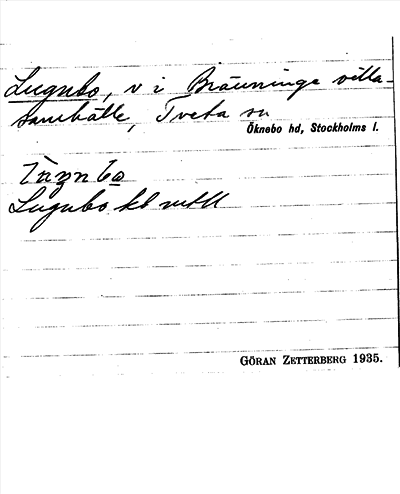 Lugnbo, v i Bränninge villa-
samhälle, Tveta sn
Öknebo hd, Stockholms l.
Lugnbo kb mtl
GÖRAN ZETTERBERG 1935.